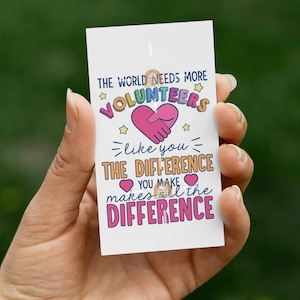 THE WORLD NEEDS MORE
VOLUNTEERS
like you
THE DIFFERENCE
YOU MAKE
makes all the
DIFFERENCE